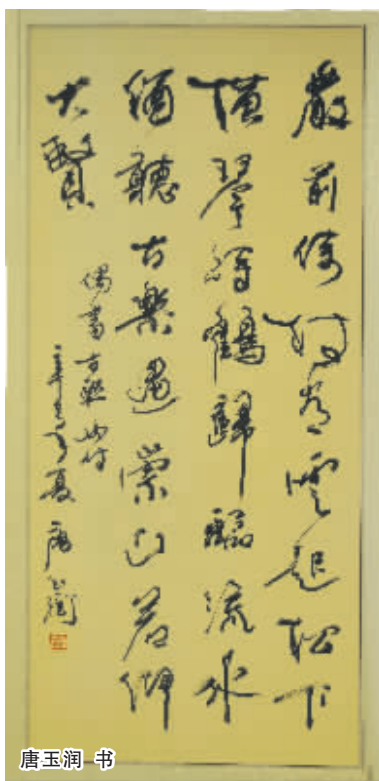 巖前倚杖看雲起松下
橫琴待鶴歸臨流水
猶聽古樂遇崇山若仰
大賢
偶書古聯兩付
夏 唐玉潤
唐玉润 书